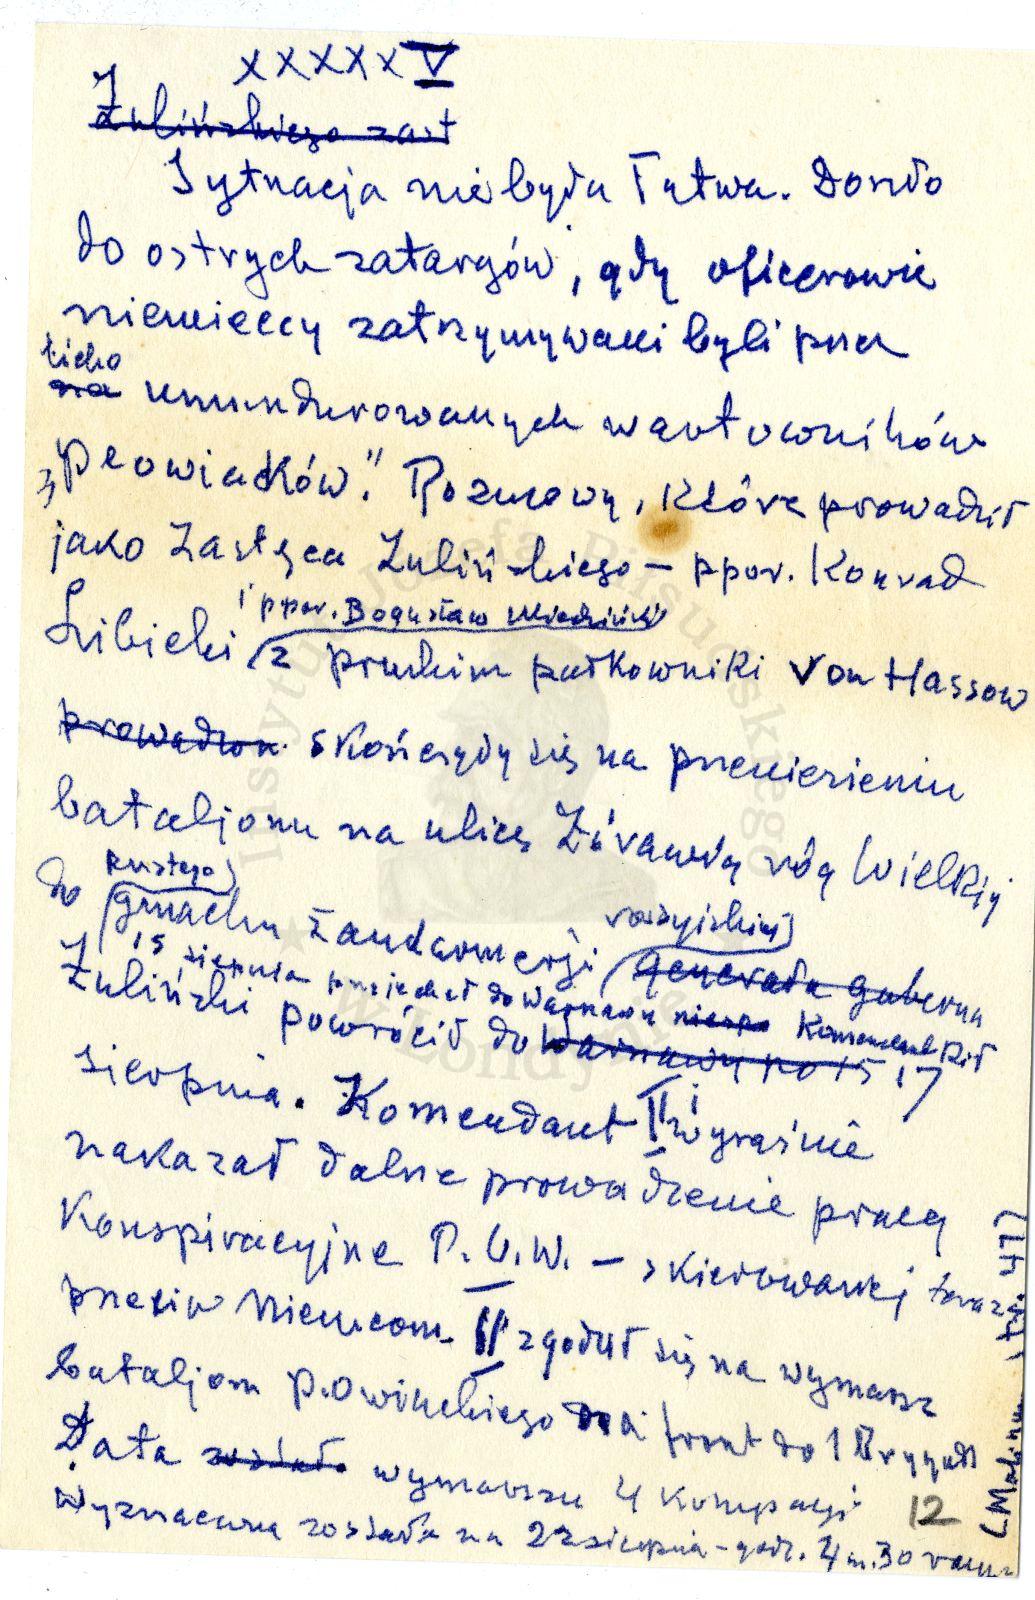 XXXXX V
Żulińskiego zast
Sytuacja nie była łatwa. Doszło
do ostrych zatargów, gdy oficerowie
niemieccy zatrzymywani byli przez
licho
na umundurowanych wartowników
„Peowiaków". Rozmowy, które prowadził
jako Zastępca Żulińskiego — ppor. Konrad
i ppor. Bogusław Miedziński
Libicki z pruskim pułkowniki von Hassow
prowadzon. skończyły się na przeniesieniu
bataljonu na ulicę Żórawią róg Wielkiej
pustego
do gmachu żandarmerji
rosyjskiej
generała guberna
15 sierpnia przyjechał do Warszawy Komendant Pił
Żuliński powrócił do Warszawy po 15 17
sierpnia. Komendant wyraźnie
nakazał dalsze prowadzenie pracy
Konspiracyjne P.O.W. — skierowanej teraz
przeciw Niemcom. zgodził się na wymarsz
bataljonu p.owiackiego na front do I Brygady
Data została wymarszu 4 kompanji
wyznaczona została na 22 sierpnia – godz. 4 m. 30 rano
12
Instytut Józefa Piłsudskiego
w Londynie